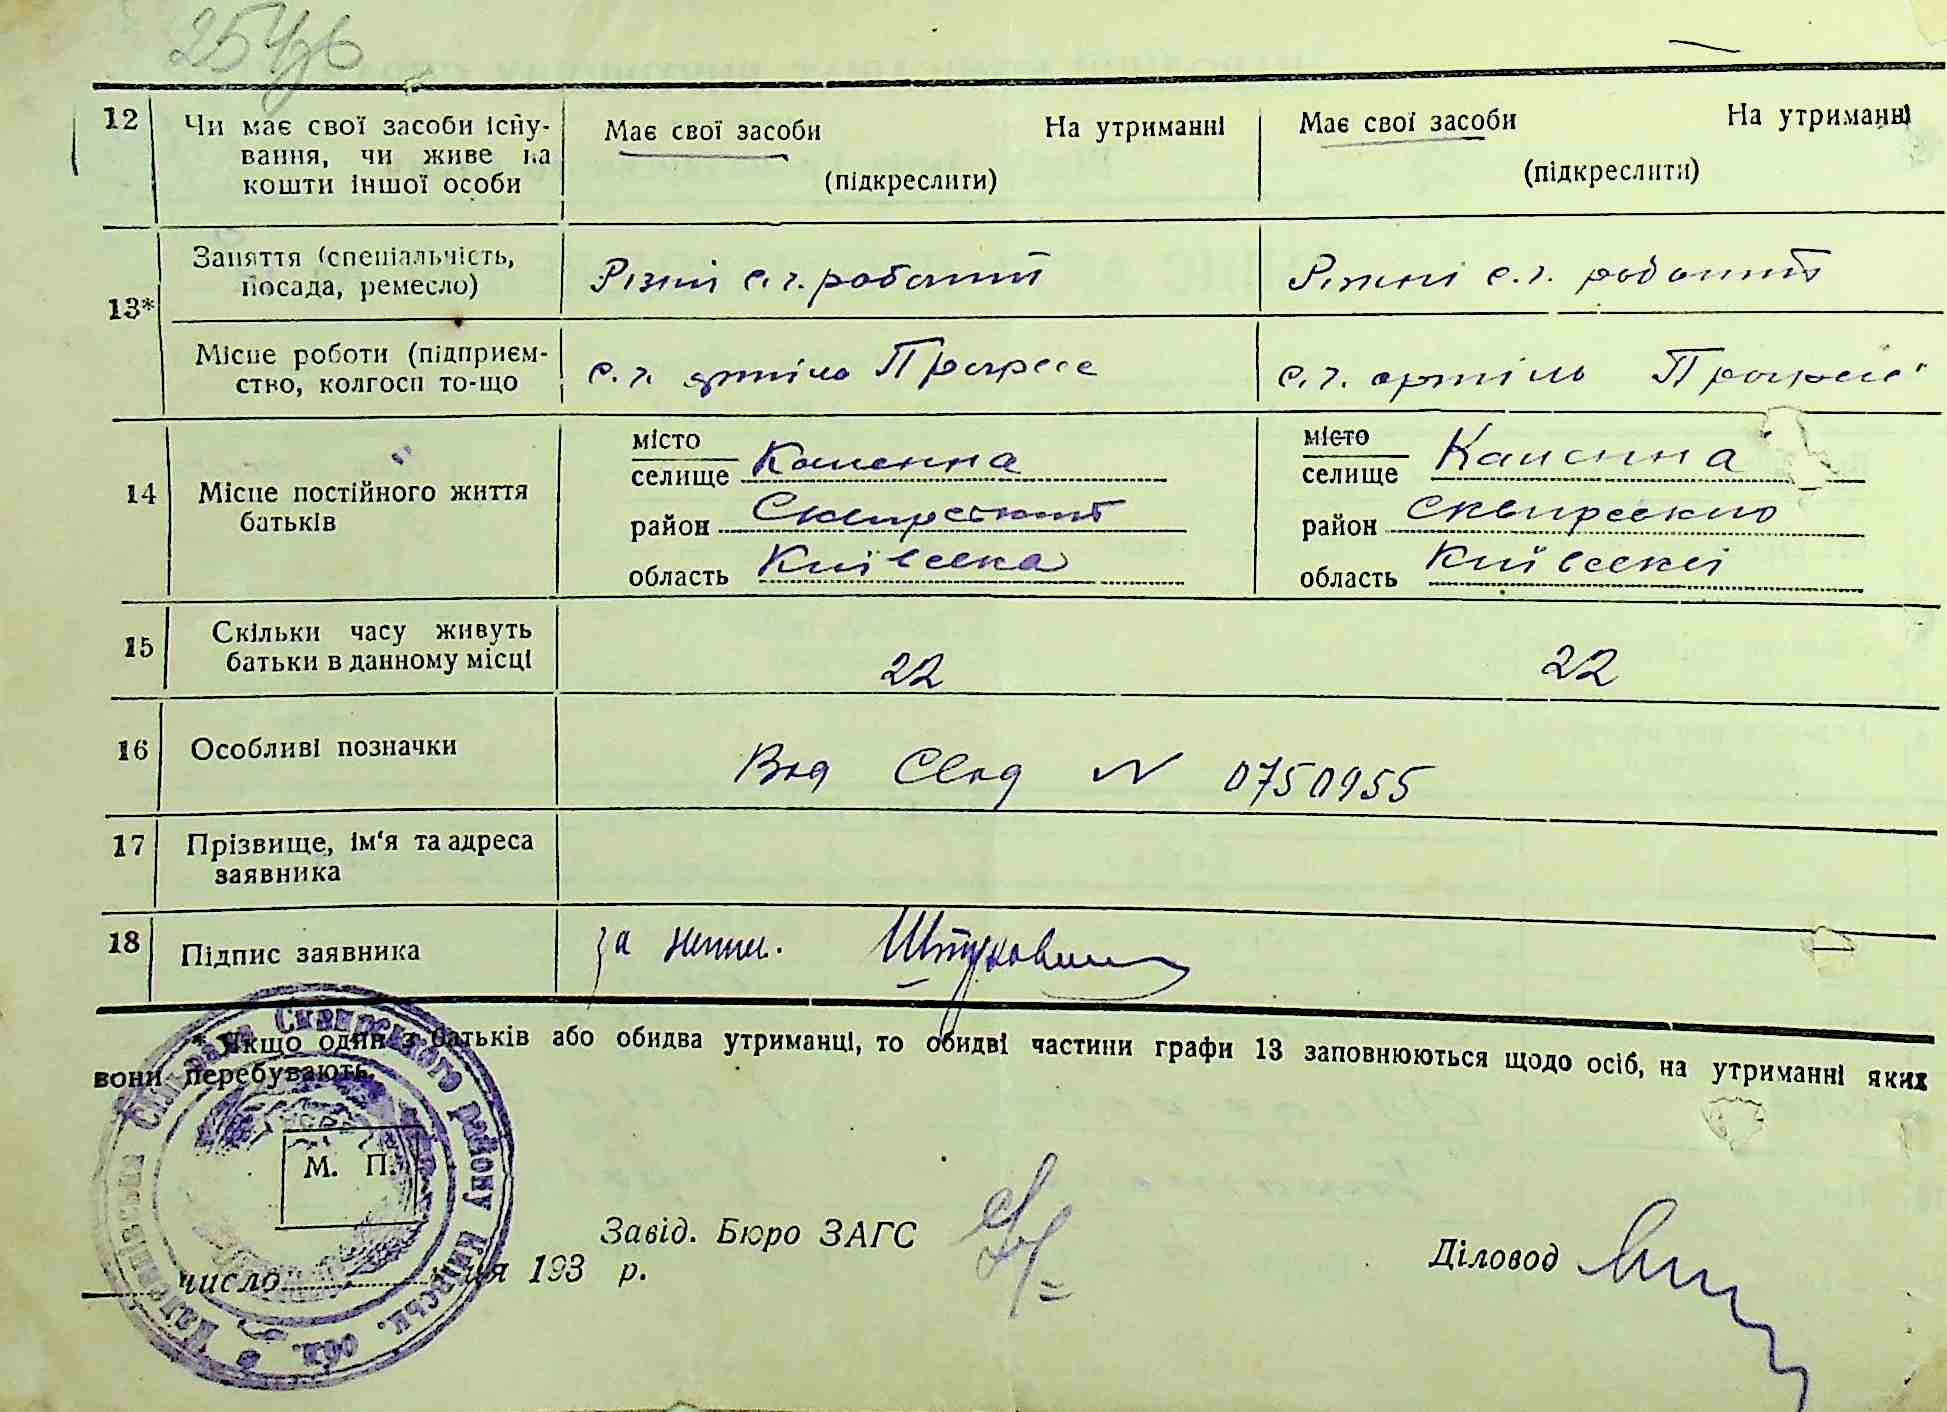 12 Чи має свої засоби існу-
вання, чи живе на
кошти іншої особи
Має свої засоби На утриманні
(підкреслити)
Має свої засоби На утриманні
(підкреслити)
13*
Заняття (спеціальність,
посада, ремесло)
Різні с. г. роботи
Різні с. г. роботи
Місце роботи (підприєм-
ство, колгосп то-що
с. г. артіль Прогрес
с. г. артіль Прогрес"
14 Місце постійного життя
батьків
місто
селище Каменна
район
область Київська
місто
селище Каменна
район Сквирский
область Київські
15 Скільки часу живуть
батьки в данному місці
22
22
16 Особливі позначки
Вид N 0750955
17 Прізвище, ім'я та адреса
заявника
18 Підпис заявника
за
* Якщо один з батьків або обидва утриманці, то обидві частини графи 13 заповнюються щодо осіб, на утриманні яких
вони перебувають.
М. П.
Сквирського району Київськ. обл.
Завід. Бюро ЗАГС
Діловод
число 193 р.